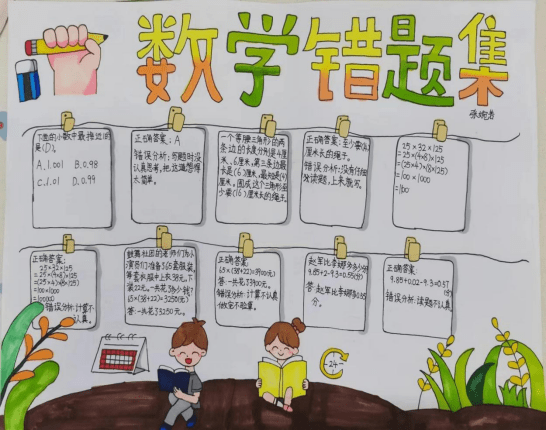 数学错题集
张婉君
下面的小数中最接近1的
是(D)。
A.1.001 B.0.98
C.1.01 D.0.99
正确答案：A
错误分析：写题时没
认真思考，把这道想得
太简单。
一个等腰三角形的两
条边的长度分别是4厘
米、6厘米，第三条边最
长是(6)厘米，最短是(4)
厘米。围成这个三角形至
少要(16)厘米长的绳子。
正确答案：至少要14
厘米长的绳子。
错误分析：没有仔细
读题，上来就写。
25×32×125
=25×(4×8)×125
=(25×4)×(8×125)
=100×1000
=100
正确答案：
25×32×125
=25×(4×8)×125
=(25×4)×(8×125)
=100×1000
=100000
错误分析：计算不
认真。
鼓舞社团的老师们为小
演员们准备65套服装，
每套衣服中上衣38元，下
装22元。一共花多少钱？
65×(38+22)=3250(元)
答：一共花3250元。
正确答案：
65×(38+22)=3900(元)
答：一共花3900元。
错误分析：计算不认真，
做完不验算。
赵军比李娜多多少分
9.85+2-9.3=0.55(分)
答：赵军比李娜多0.55
分。
正确答案：
9.85+0.02-9.3=0.57
(分)
错误分析：读题不认真。
24